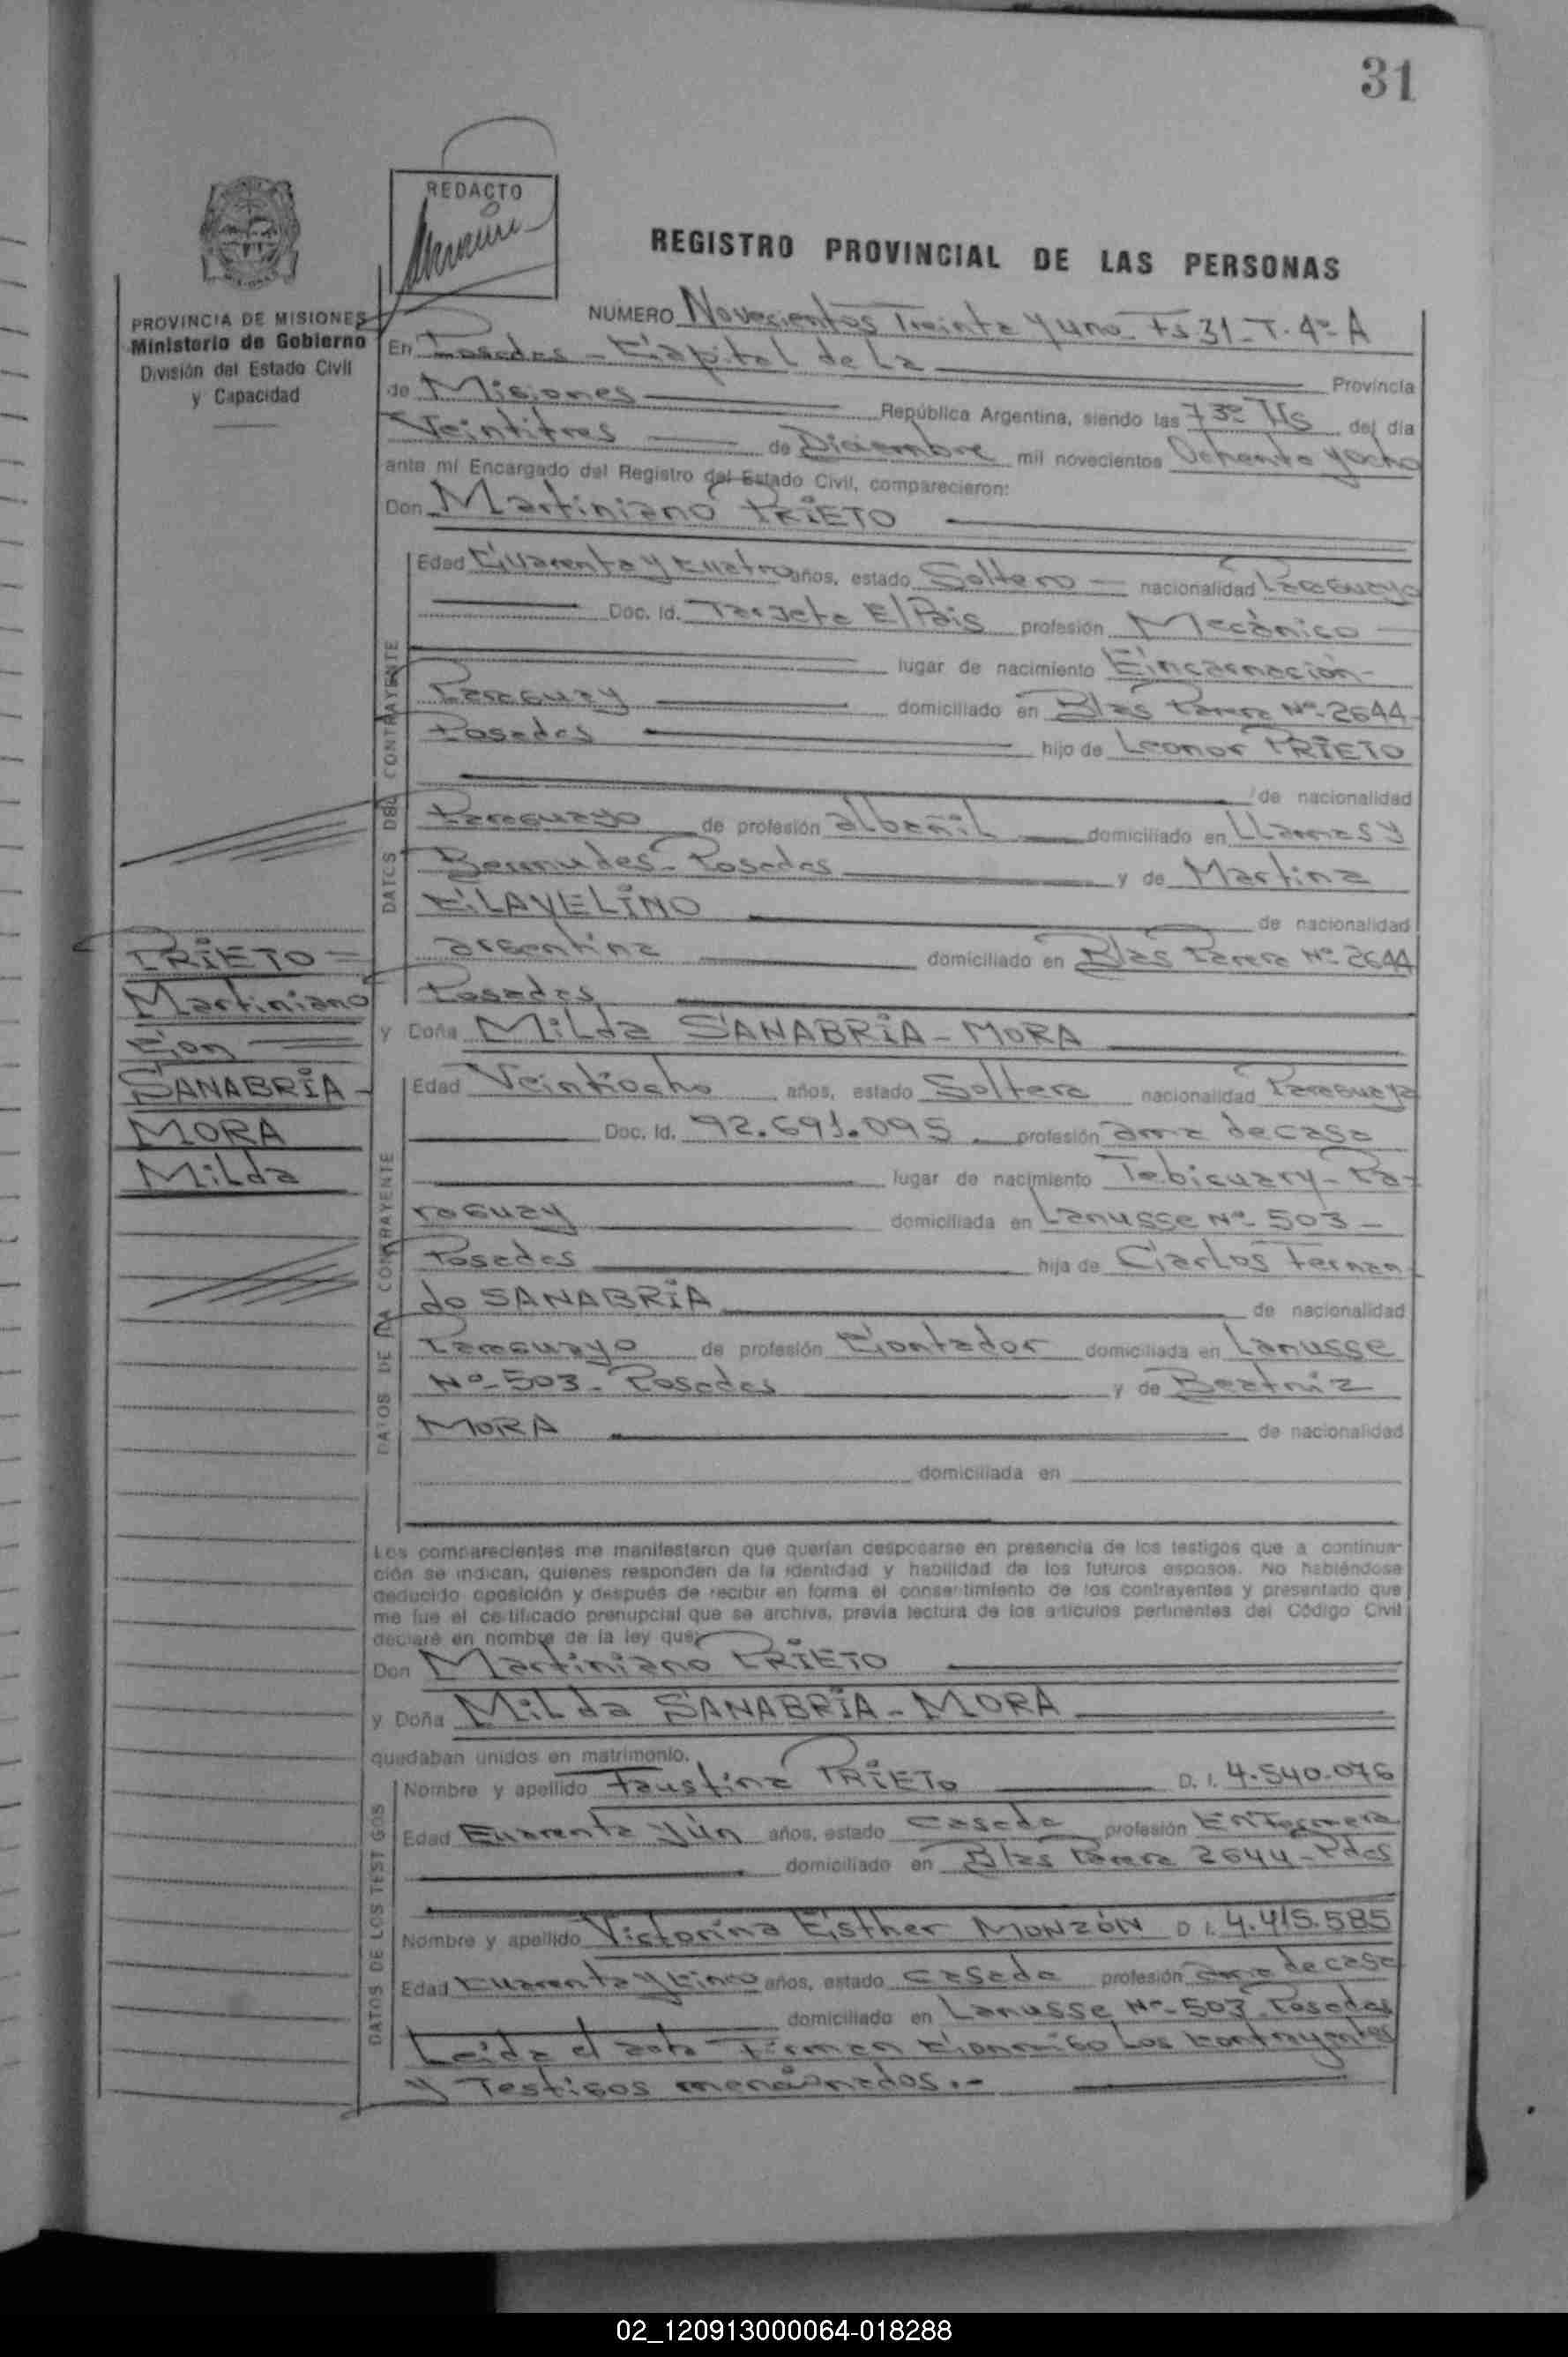 31
REDACTO
REGISTRO PROVINCIAL DE LAS PERSONAS
PROVINCIA DE MISIONES
Ministerio de Gobierno
División del Estado Civil
y Capacidad
NUMERO Novecientos Treinta y uno - Fs 31 - T. 4º - A
En Posadas - Capital de La Provincia
de Misiones República Argentina, siendo las 7 30 Hs del día
Veintitres de Diciembre mil novecientos Ochenta y ocho
ante mí Encargado del Registro del Estado Civil, comparecieron:
Don Martiniano PRIETO
DATOS DEL CONTRAYENTE
Edad Cuarenta y cuatro años, estado Soltero - nacionalidad Paraguayo
Doc. Id. Tarjeta El Pais profesión Mecánico
lugar de nacimiento Encarnación -
Paraguay domiciliado en Blas Parera Nº - 2644
Posadas hijo de Leonor PRIETO
de nacionalidad
Paraguayo de profesión albañil domiciliado en LLamas y
Bermudes - Posadas y de Martina
CLAVELINO de nacionalidad
argentina domiciliado en Blas Parera Nº 2644
Posadas
PRIETO =
Martiniano
Con
SANABRIA -
MORA
Milda
y Doña Milda SANABRIA - MORA
DATOS DE LA CONTRAYENTE
Edad Veintiocho años, estado Soltera nacionalidad Paraguaya
Doc. Id. 92.691.095 profesión ama de casa
lugar de nacimiento Tebicuary - Pa-
raguay domiciliada en Lanusse Nº - 503 -
Posadas hija de Carlos Fernan-
do SANABRIA de nacionalidad
Paraguayo de profesión Contador domiciliada en Lanusse
Nº - 503 - Posadas y de Beatriz
MORA de nacionalidad
domiciliada en
Los comparecientes me manifestaron que querían desposarse en presencia de los testigos que a continua-
ción se indican, quienes responden de la identidad y habilidad de los futuros esposos. No habiéndose
deducido oposición y después de recibir en forma el consentimiento de los contrayentes y presentado que
me fue el certificado prenupcial que se archiva, previa lectura de los artículos pertinentes del Código Civil
declaré en nombre de la ley que:
Don Martiniano PRIETO
y Doña Milda SANABRIA - MORA
quedaban unidos en matrimonio.
DATOS DE LOS TESTIGOS
Nombre y apellido Faustina PRIETO D. I. 4.540.076
Edad Cuarenta y Un años, estado casada profesión Enfermera
domiciliado en Blas Parera 2644 - Pdas
Nombre y apellido Victorina Esther MONZÓN D I. 4.415.585
Edad Cuarenta y cinco años, estado casada profesión ama de casa
domiciliado en Lanusse Nº - 503 - Posadas
Leida el acta Firman Conmigo Los contrayentes
y Testigos mencionados. -
02_120913000064-018288